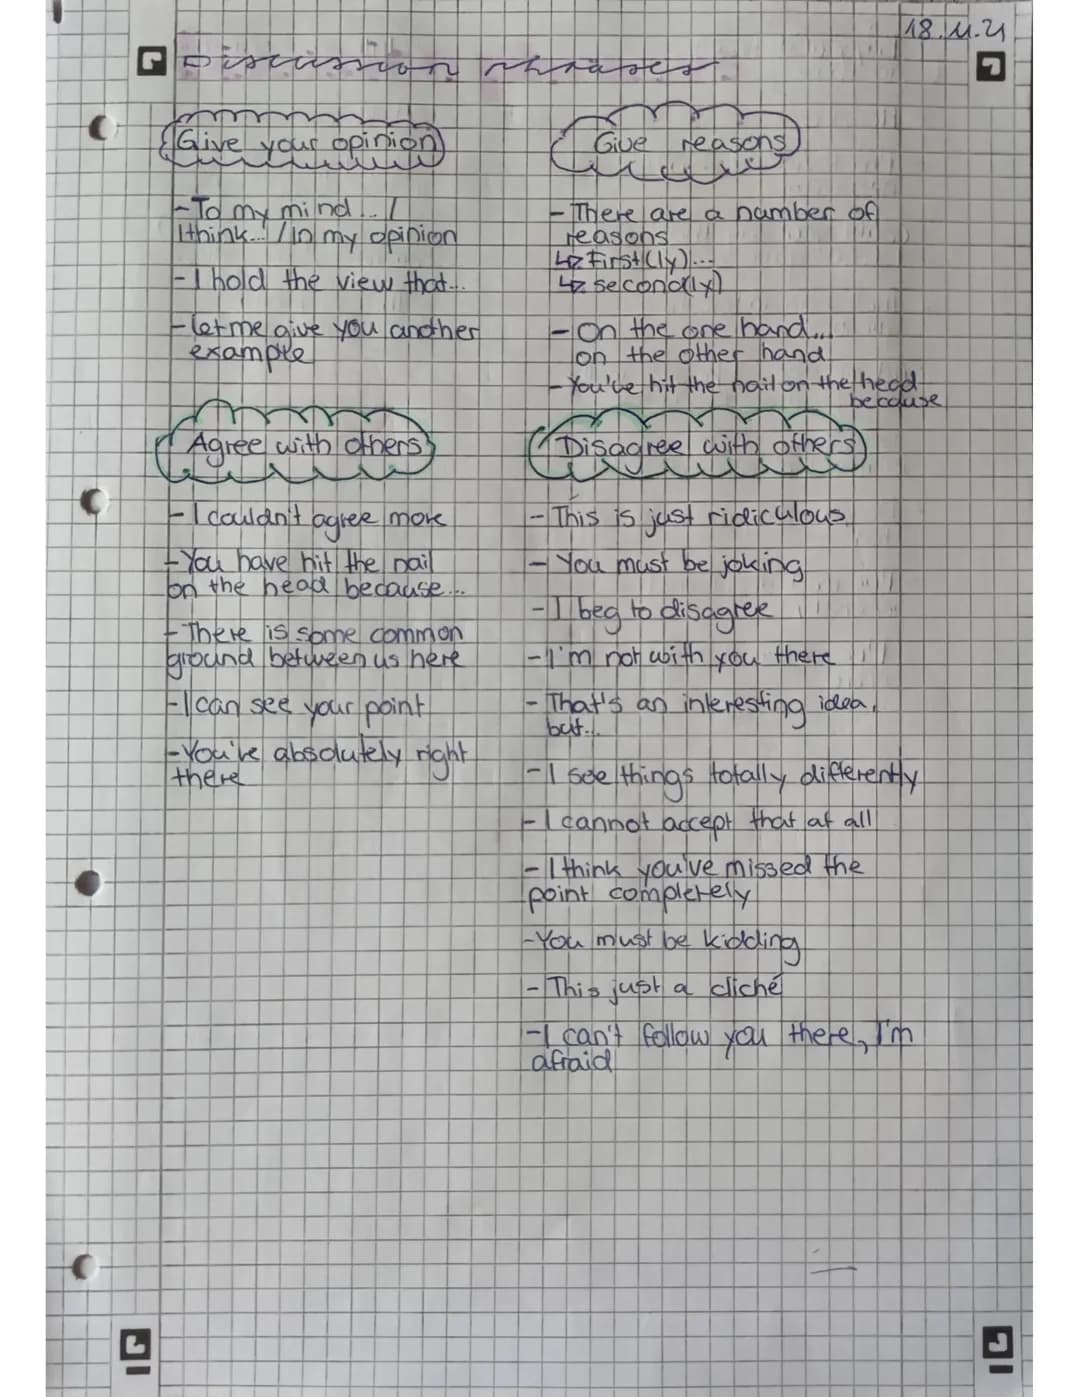 18.11.21
Discussion phrases
Give your opinion
- To my mind... /
I think... / in my opinion
- I hold the view that...
- let me give you another
example
Give reasons
- There are a number of
reasons
↳ First(ly)...
↳ second(ly)
- On the one hand...
on the other hand
- You've hit the nail on the head
because
Agree with others
- I couldn't agree more
- You have hit the nail
on the head because...
- There is some common
ground between us here
- I can see your point
- You're absolutely right
there
Disagree with others
- This is just ridiculous
- You must be joking
- I beg to disagree
- I'm not with you there
- That's an interesting idea,
but...
- I see things totally differently
- I cannot accept that at all
- I think you've missed the
point completely
- You must be kidding
- This just a cliché
- I can't follow you there, I'm
afraid